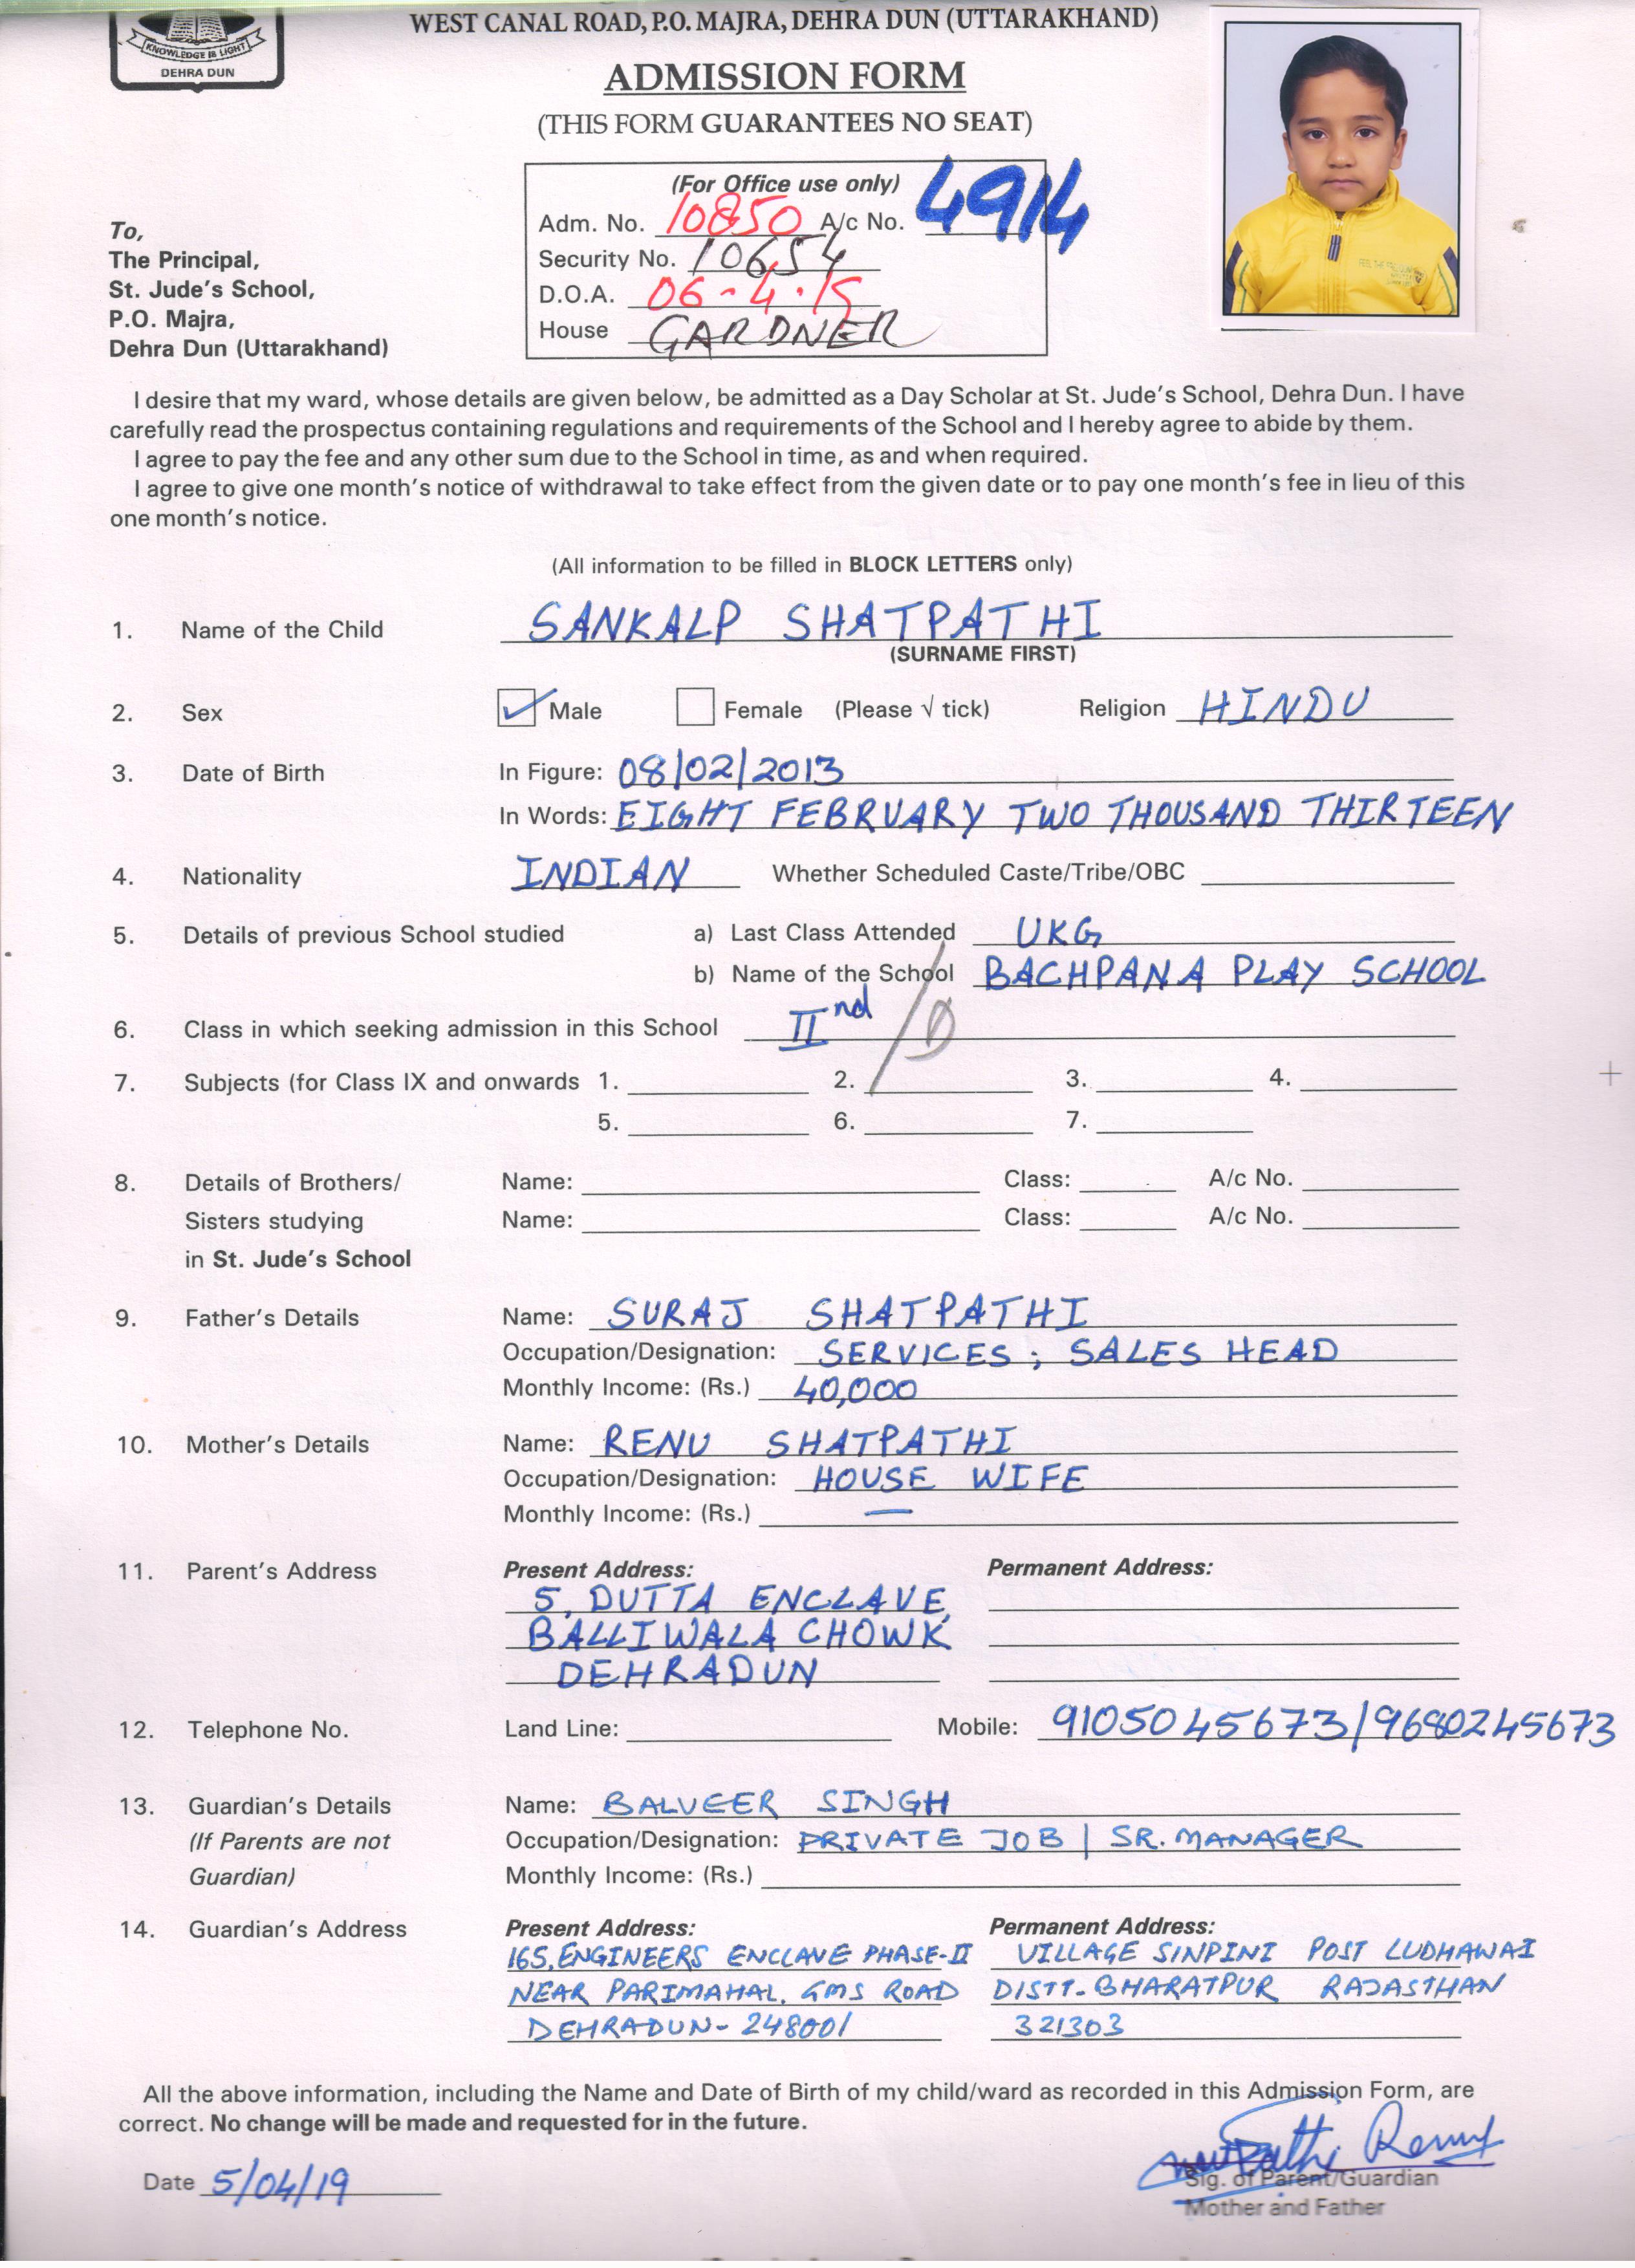 KNOWLEDGE IS LIGHT
DEHRA DUN
WEST CANAL ROAD, P.O. MAJRA, DEHRA DUN (UTTARAKHAND)
ADMISSION FORM
(THIS FORM GUARANTEES NO SEAT)
(For Office use only)
Adm. No. 10850 A/c No. 4914
Security No. 10654
D.O.A. 06-4.19
House GARDNER
To,
The Principal,
St. Jude's School,
P.O. Majra,
Dehra Dun (Uttarakhand)
I desire that my ward, whose details are given below, be admitted as a Day Scholar at St. Jude's School, Dehra Dun. I have
carefully read the prospectus containing regulations and requirements of the School and I hereby agree to abide by them.
I agree to pay the fee and any other sum due to the School in time, as and when required.
I agree to give one month's notice of withdrawal to take effect from the given date or to pay one month's fee in lieu of this
one month's notice.
(All information to be filled in BLOCK LETTERS only)
1. Name of the Child SANKALP SHATPATHI
(SURNAME FIRST)
2. Sex Male Female (Please √ tick) Religion HINDU
3. Date of Birth In Figure: 08/02/2013
In Words: EIGHT FEBRUARY TWO THOUSAND THIRTEEN
4. Nationality INDIAN Whether Scheduled Caste/Tribe/OBC
5. Details of previous School studied a) Last Class Attended UKG
b) Name of the School BACHPANA PLAY SCHOOL
6. Class in which seeking admission in this School IInd /D
7. Subjects (for Class IX and onwards 1. 2. 3. 4.
5. 6. 7.
8. Details of Brothers/ Name: Class: A/c No.
Sisters studying Name: Class: A/c No.
in St. Jude's School
9. Father's Details Name: SURAJ SHATPATHI
Occupation/Designation: SERVICES ; SALES HEAD
Monthly Income: (Rs.) 40,000
10. Mother's Details Name: RENU SHATPATHI
Occupation/Designation: HOUSE WIFE
Monthly Income: (Rs.) —
11. Parent's Address Present Address: Permanent Address:
5, DUTTA ENCLAVE,
BALLIWALA CHOWK
DEHRADUN
12. Telephone No. Land Line: Mobile: 9105045673/9680245673
13. Guardian's Details Name: BALVEER SINGH
(If Parents are not Occupation/Designation: PRIVATE JOB | SR. MANAGER
Guardian) Monthly Income: (Rs.)
14. Guardian's Address Present Address: Permanent Address:
165, ENGINEERS ENCLAVE PHASE-II VILLAGE SINPINI POST LUDHAWAI
NEAR PARIMAHAL. GMS ROAD DISTT-BHARATPUR RAJASTHAN
DEHRADUN- 248001 321303
All the above information, including the Name and Date of Birth of my child/ward as recorded in this Admission Form, are
correct. No change will be made and requested for in the future.
Renu
Date 5/04/19 Sig. of Parent/Guardian
Mother and Father